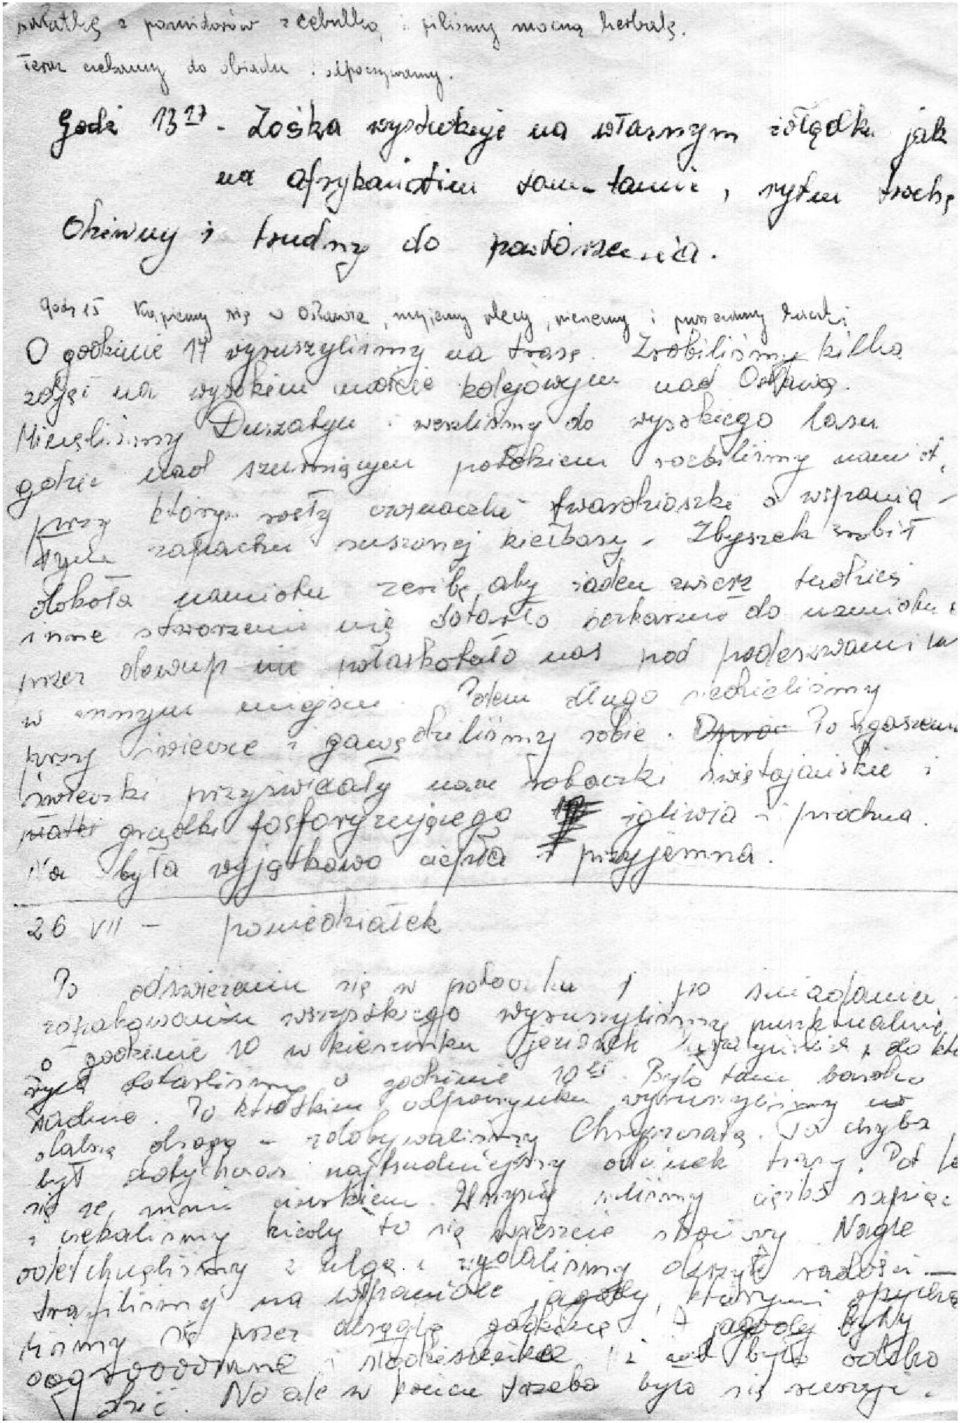 sałatkę z pomidorów z cebulką i piliśmy mocną herbatę.
Teraz czekamy do obiadu i odpoczywamy.
Godz 13 27 - Zośka wystukuje na własnym żołądku jak
na afrykańskim tam-tamie, rytm trochę
dziwny i trudny do powtórzenia.
godz 15 Kąpiemy się w Osławie, myjemy plecy, pierzemy i puszczamy kaczki
O godzinie 17 wyruszyliśmy na trasę. Zrobiliśmy kilka
zdjęć na wysokim moście kolejowym nad Osławą.
Minęliśmy Duszatyn i weszliśmy do wysokiego lasu
gdzie nad szumiącym potokiem rozbiliśmy namiot,
przy którym rosły czernaczki twardzioszki o wspania-
łym zapachu suszonej kiełbasy - Zbyszek zrobił
dokoła namiotu zeribę, aby żaden zwierz tudzież
inne stworzenie nie dotarło bezkarnie do namiotu i
przez dowcip nie połaskotało nas pod podeszwami lub
w innym miejscu. Potem długo siedzieliśmy
przy świecce i gawędziliśmy sobie. Po zgaszeniu
świeczki przyświecały nam robaczki świętojańskie i
grządki fosforyzującego igliwia i próchna.
była wyjątkowo ciepła i przyjemna.
26 VII - poniedziałek
Po odświeżeniu się w potoczku i po śniadaniu
zapakowaniu wszystkiego wyruszyliśmy punktualnie
o godzinie 10 w kierunku jeziorek i do któ
rych dotarliśmy o godzinie 10 Było tam bardzo
ładnie. Po krótkim odpoczynku wyruszyliśmy w
dalszą drogę - zdobywaliśmy Chryszczatą. To chyba
był dotychczas najtrudniejszy odcinek trasy. Pot lał
się ze mnie ciurkiem. Wszyscy szliśmy ciężko sapiąc
i czekaliśmy kiedy to się wreszcie skończy. Nagle
odetchnęliśmy z ulgą i wydaliśmy okrzyk radości -
trafiliśmy na wspaniałe jagody, którymi opycha
liśmy się przez okrągłą godzinę. A jagody były
oogroooomne i słodziusieńkie
No ale w końcu trzeba było się ruszyć.